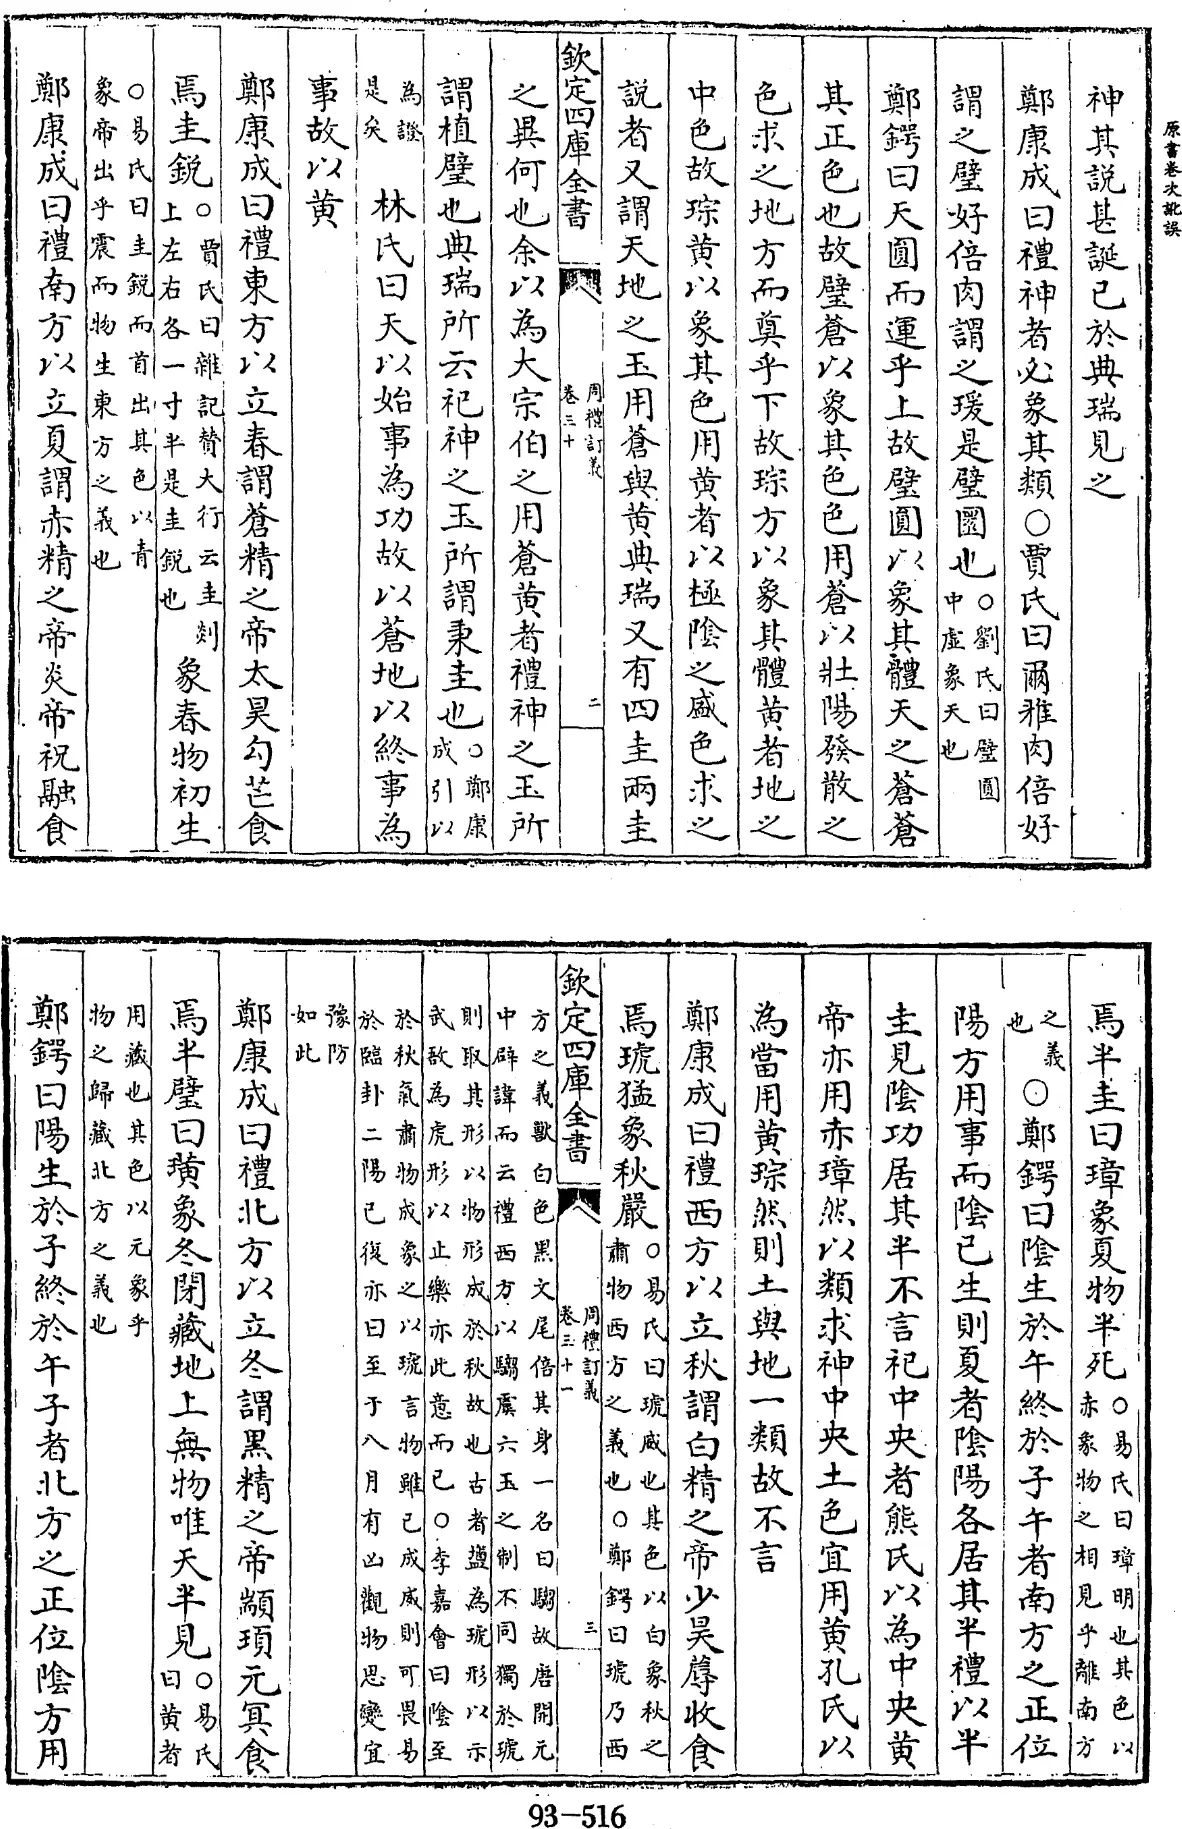 原書卷次訛誤
神其説甚誕已於典瑞見之
鄭康成曰禮神者必象其類○賈氏曰爾雅肉倍好
謂之璧好倍肉謂之瑗是璧圜也○劉氏曰璧圓中虛象天也
鄭鍔曰天圓而運乎上故璧圓以象其體天之蒼蒼
其正色也故璧蒼以象其色色用蒼以壯陽發散之
色求之地方而奠乎下故琮方以象其體黄者地之
中色故琮黄以象其色用黄者以極陰之盛色求之
説者又謂天地之玉用蒼與黄典瑞又有四圭兩圭
欽定四庫全書 周禮訂義 卷三十 二
之異何也余以為大宗伯之用蒼黄者禮神之玉所
謂植璧也典瑞所云祀神之玉所謂秉圭也○鄭康成引以
為證是矣 林氏曰天以始事為功故以蒼地以終事為
事故以黄
鄭康成曰禮東方以立春謂蒼精之帝太昊勾芒食
焉圭鋭○賈氏曰雜記贊大行云圭剡上左右各一寸半是圭鋭也象春物初生
○易氏曰圭鋭而首出其色以青象帝出乎震而物生東方之義也
鄭康成曰禮南方以立夏謂赤精之帝炎帝祝融食
焉半圭曰璋象夏物半死○易氏曰璋明也其色以赤象物之相見乎離南方
之義也○鄭鍔曰陰生於午終於子午者南方之正位
陽方用事而陰已生則夏者陰陽各居其半禮以半
圭見陰功居其半不言祀中央者熊氏以為中央黄
帝亦用赤璋然以類求神中央土色宜用黄孔氏以
為當用黄琮然則土與地一類故不言
鄭康成曰禮西方以立秋謂白精之帝少昊蓐收食
焉琥猛象秋嚴○易氏曰琥威也其色以白象秋之肅物西方之義也○鄭鍔曰琥乃西
欽定四庫全書 周禮訂義 卷三十一 三
方之義獸白色黑文尾倍其身一名曰騶故唐開元中辟諱而云禮西方以騶虞六玉之制不同獨於琥
則取其形以物形成於秋故也古者盬為琥形以示武敔為虎形以止樂亦此意而已○李嘉會曰陰至
於秋氣肅物成象之以琥言物雖已成威則可畏易於臨卦二陽已復亦曰至于八月有凶觀物思變宜
豫防如此
鄭康成曰禮北方以立冬謂黑精之帝顓頊元冥食
焉半璧曰璜象冬閉藏地上無物唯天半見○易氏曰黄者
用藏也其色以元象乎物之歸藏北方之義也
鄭鍔曰陽生於子終於午子者北方之正位陰方用
93-516